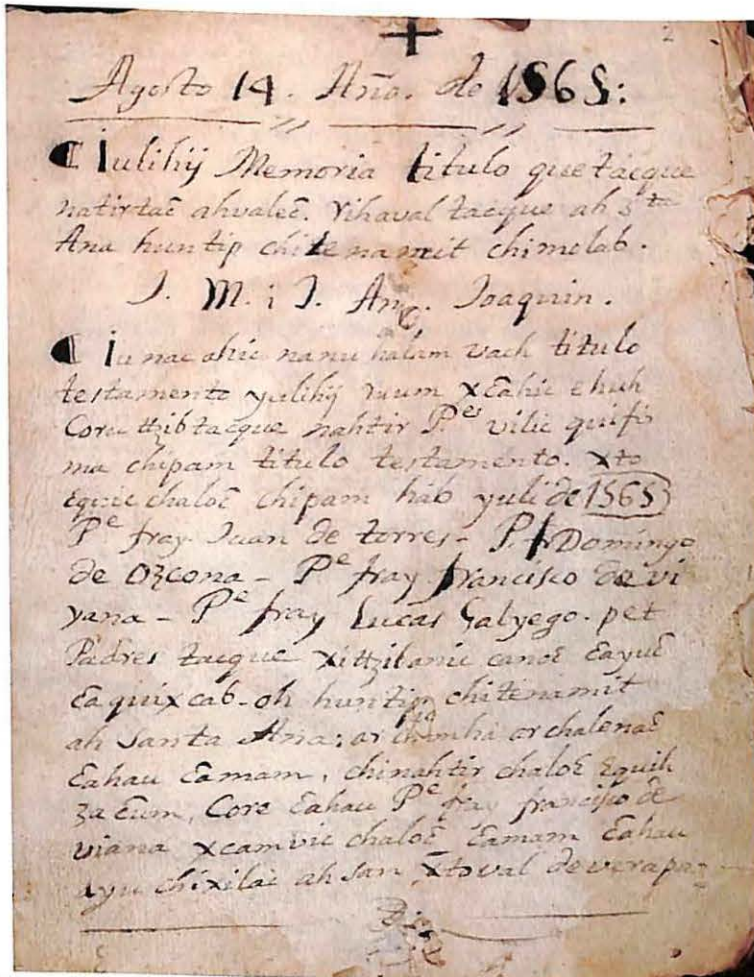 2
Agosto 14. Aña. de 1565:
Iulihij Memoria titulo que tacque
natirtac ahvalec. rihaval tacque ah Sta
Ana huntip chitenamit chimolab.
J. M. i J. Ana. Joaquin.
Iu nac ahic nanu halam vach titulo
testamento yulihij ruum xcahic ehuh
Core tzib tacque nahtir Pes vilic quifir
ma chipam titulo testamento. xto
equic chaloc chipam hab yuli de 1565
Pe fray Juan de torres - P. fr Domingo
de Ozcona - Pe fray francisco de vi
yana - Pe fray Lucas Galyego. pet
Padres tacque xittzilanic canoc cayuc
ca quixcab. oh huntip chitenamit
ah Santa Ana; ar chalenac
cahau camam, chinahtir chaloc
za cum, Core cahau Pe fray francisco de
viana xcamvic chaloc camam cahau
ayu chixilac ah san xtoval de verapaz